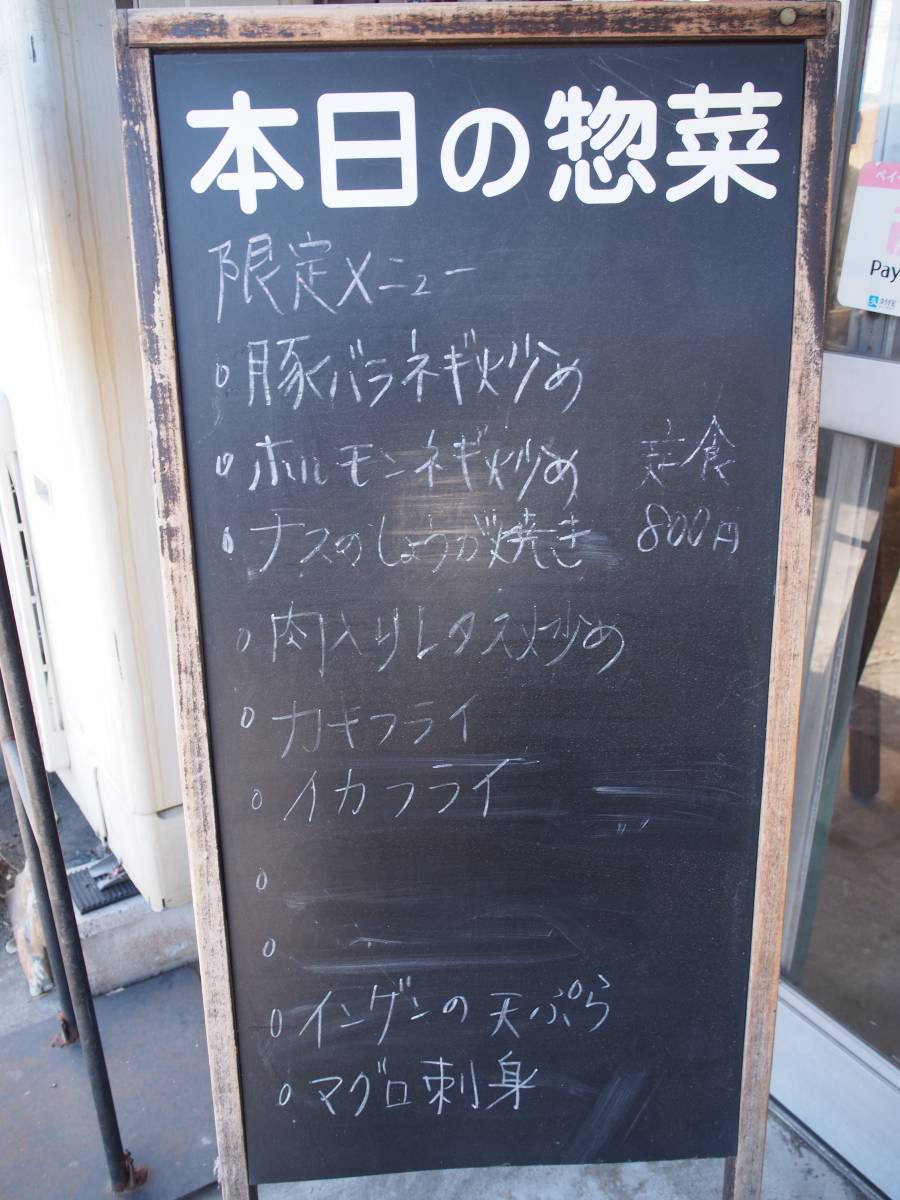 本日の惣菜
限定メニュー
○豚バラネギ炒め
○ホルモンネギ炒め 定食
○ナスのしょうが焼き 800円
○肉入りレタス炒め
○カキフライ
○イカフライ
○
○
○インゲンの天ぷら
○マグロ刺身
Pay